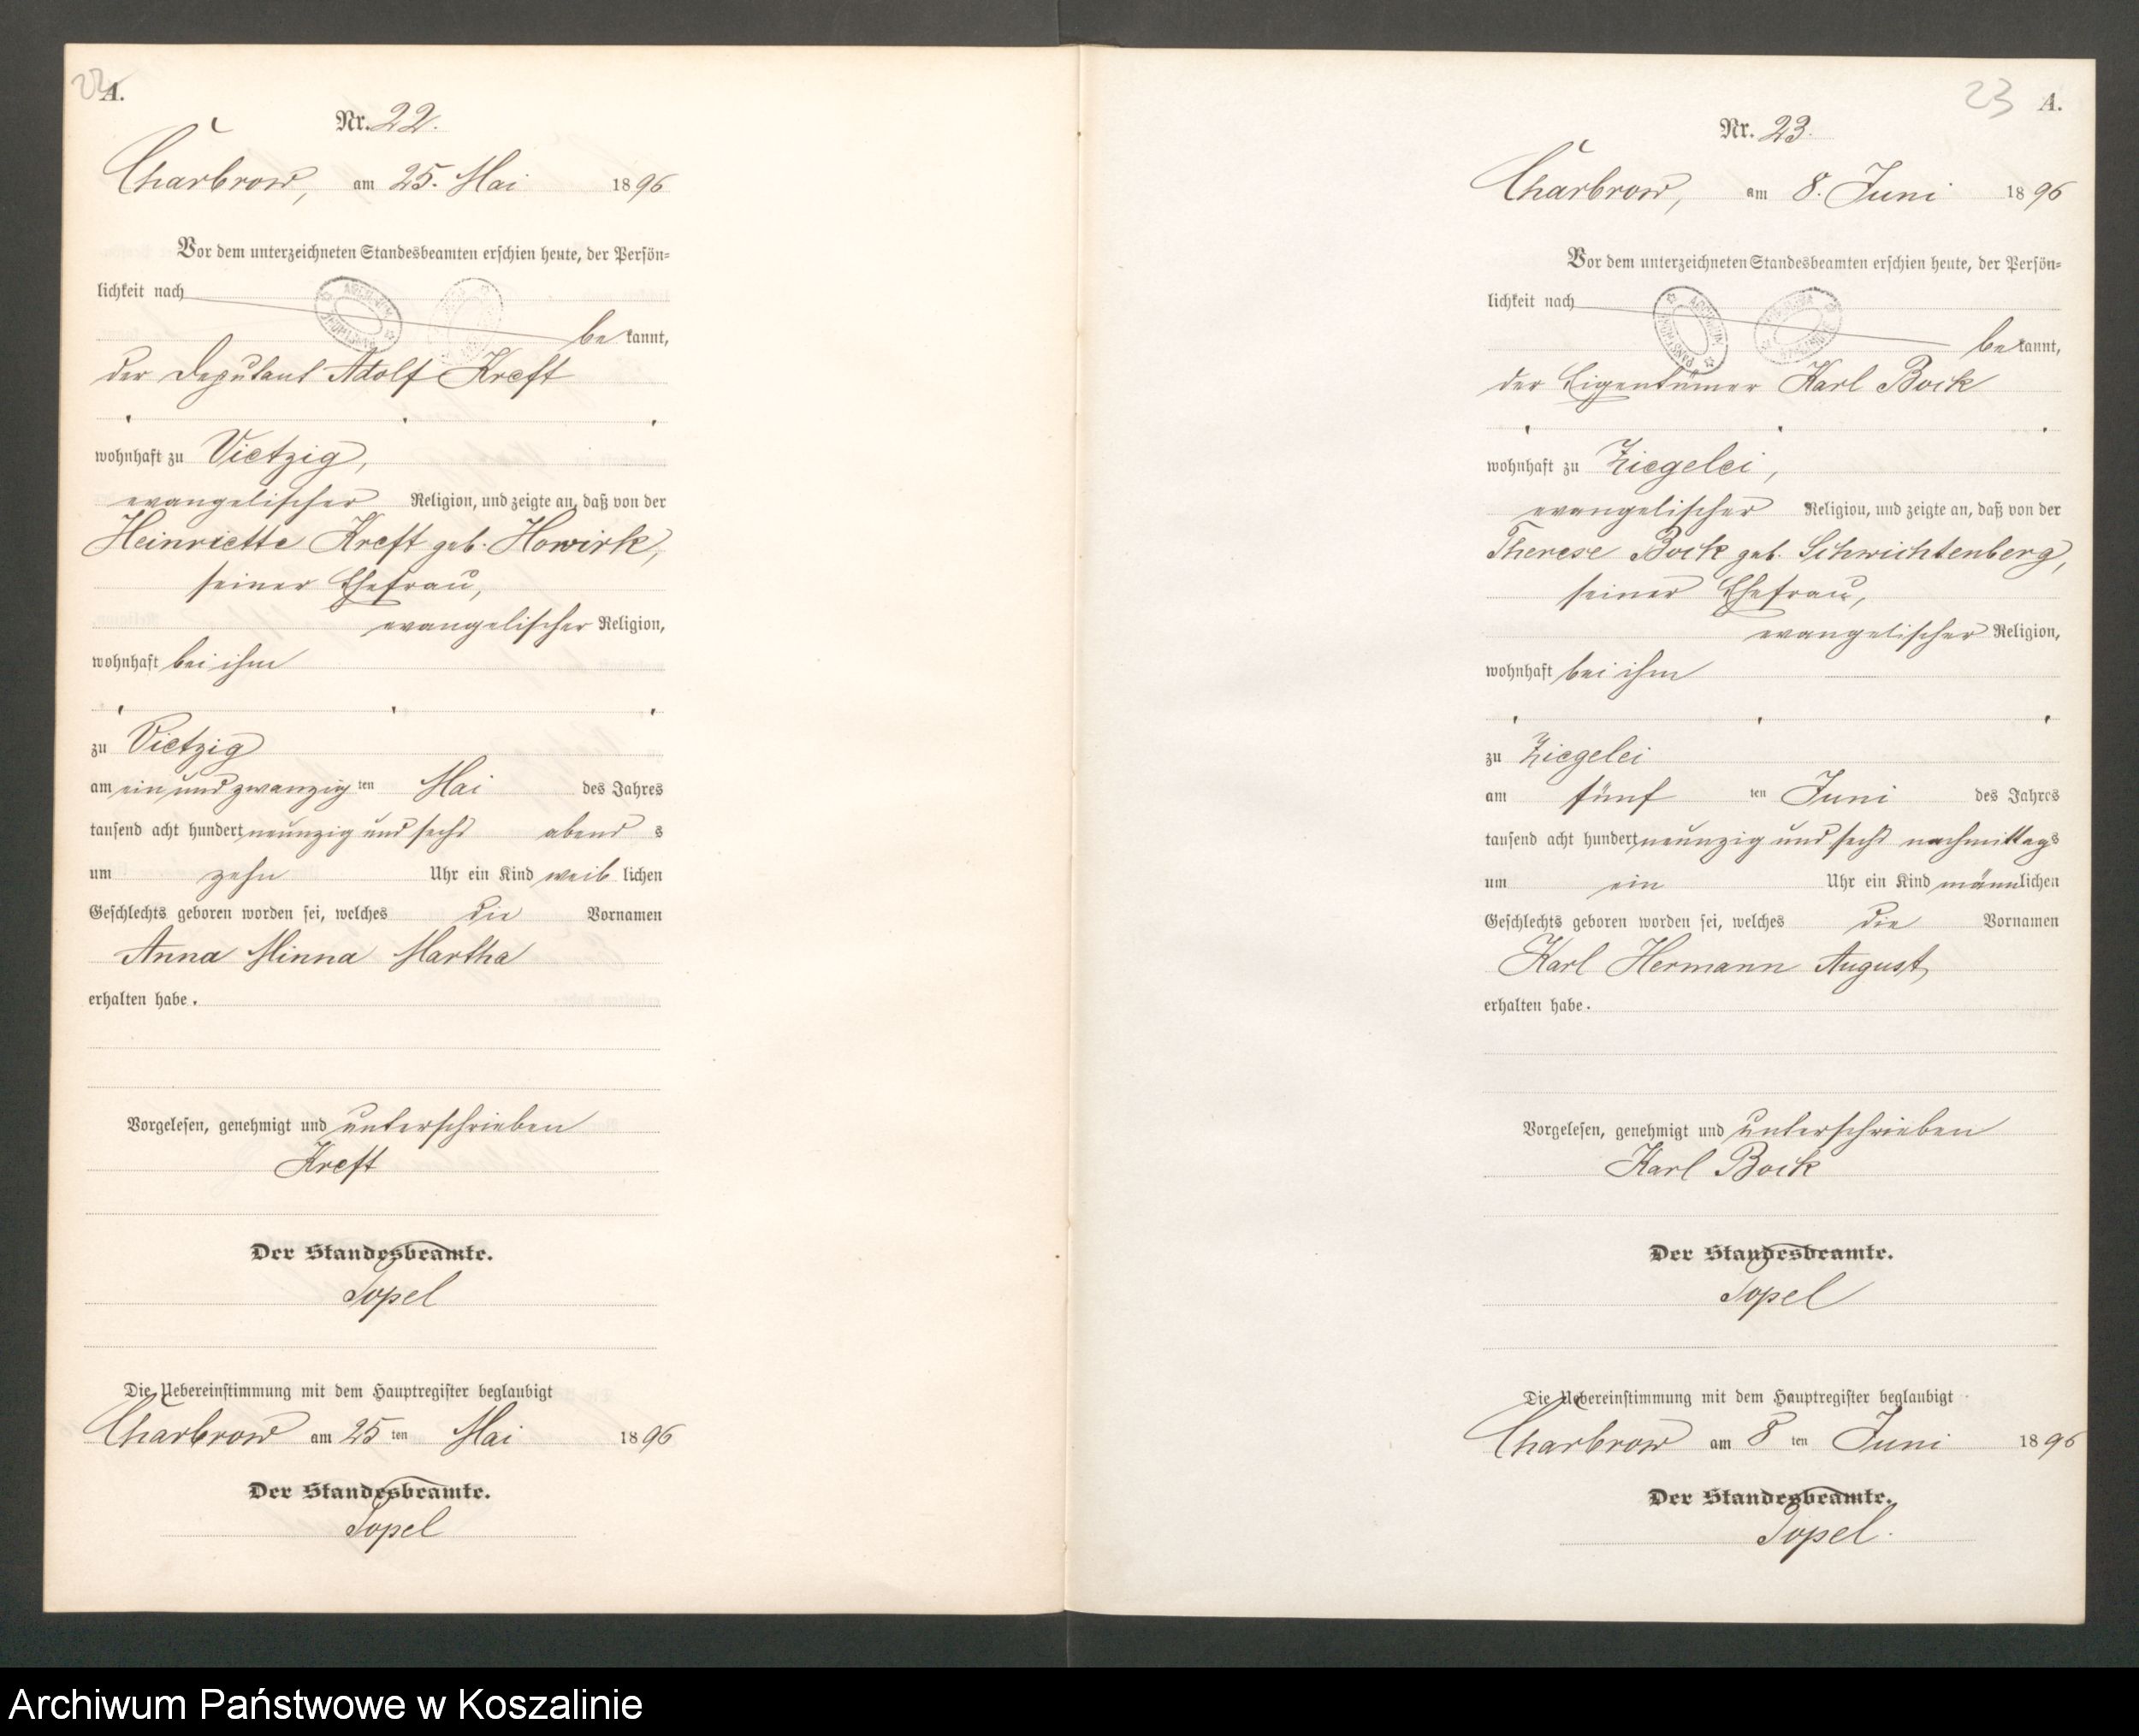 22
A.
Nr. 22.
Charbrow, am 25. Mai 1896
Vor dem unterzeichneten Standesbeamten erschien heute, der Persön-
lichkeit nach
bekannt,
der Deputant Adolf Kreft
wohnhaft zu Vietzig,
evangelischer Religion, und zeigte an, daß von der
Heinriette Kreft geb. Howirk,
seiner Ehefrau,
evangelischer Religion,
wohnhaft bei ihm
zu Vietzig
am ein und zwanzig ten Mai des Jahres
tausend acht hundert neunzig und sechs abend s
um zehn Uhr ein Kind weib lichen
Geschlechts geboren worden sei, welches die Vornamen
Anna Minna Martha
erhalten habe.
Vorgelesen, genehmigt und unterschrieben
Kreft
Der Standesbeamte.
Topel
Die Uebereinstimmung mit dem Hauptregister beglaubigt
Charbrow am 25 ten Mai 1896
Der Standesbeamte.
Topel
23 A.
Nr. 23.
Charbrow, am 8. Juni 1896
Vor dem unterzeichneten Standesbeamten erschien heute, der Persön-
lichkeit nach
bekannt,
der Eigentümer Karl Bock
wohnhaft zu Ziegelei,
evangelischer Religion, und zeigte an, daß von der
Therese Bock geb. Schwichtenberg,
seiner Ehefrau,
evangelischer Religion,
wohnhaft bei ihm
zu Ziegelei
am fünf ten Juni des Jahres
tausend acht hundert neunzig und sechs nachmittags
um ein Uhr ein Kind männlichen
Geschlechts geboren worden sei, welches die Vornamen
Karl Hermann August
erhalten habe.
Vorgelesen, genehmigt und unterschrieben
Karl Bock
Der Standesbeamte.
Topel
Die Uebereinstimmung mit dem Hauptregister beglaubigt
Charbrow am 8 ten Juni 1896
Der Standesbeamte.
Topel.
Archiwum Państwowe w Koszalinie